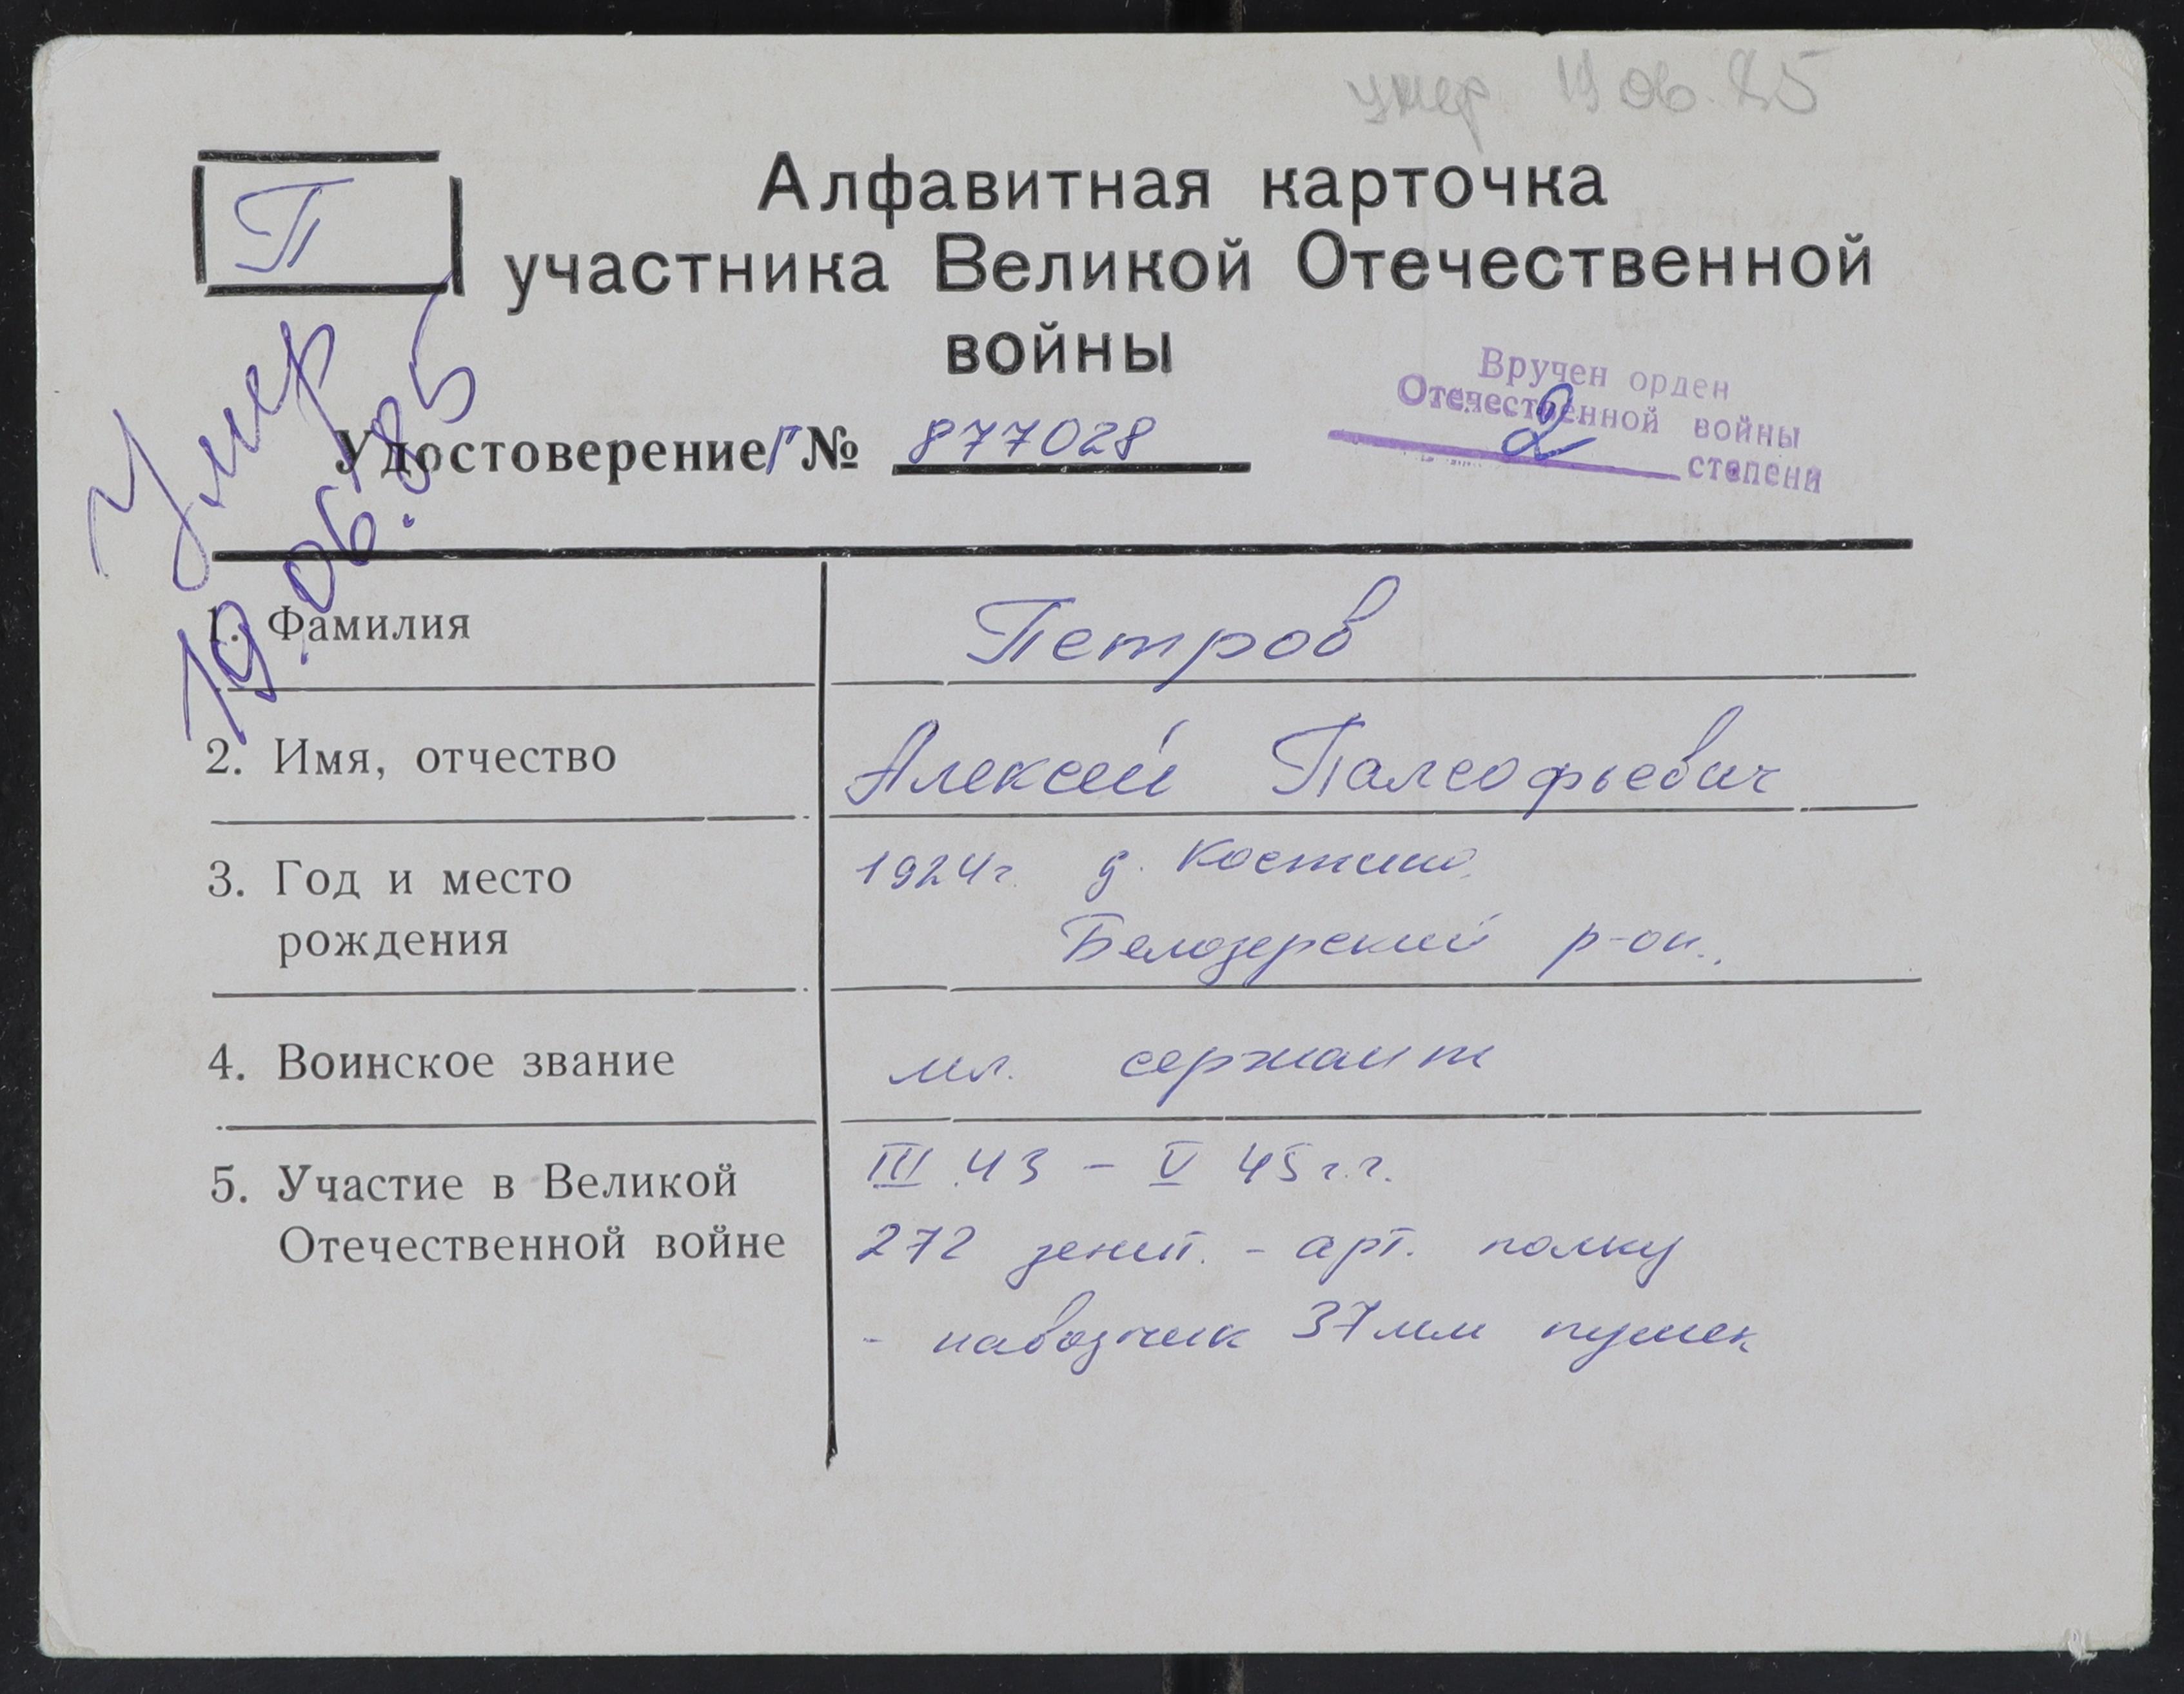 умер 19 06. 85
П
Алфавитная карточка
участника Великой Отечественной
войны
Умер
19.06.85
Вручен орден
Отечественной войны
2 степени
Удостоверение Г № 877028
1. Фамилия Петров
2. Имя, отчество Алексей
3. Год и место 1924г. д. Костино,
рождения Белозерский р-он.
4. Воинское звание мл. сержант
5. Участие в Великой III 43 – V 45 г.г.
Отечественной войне 272 зенит. - арт. полку
- наводчик 37 мм пушек